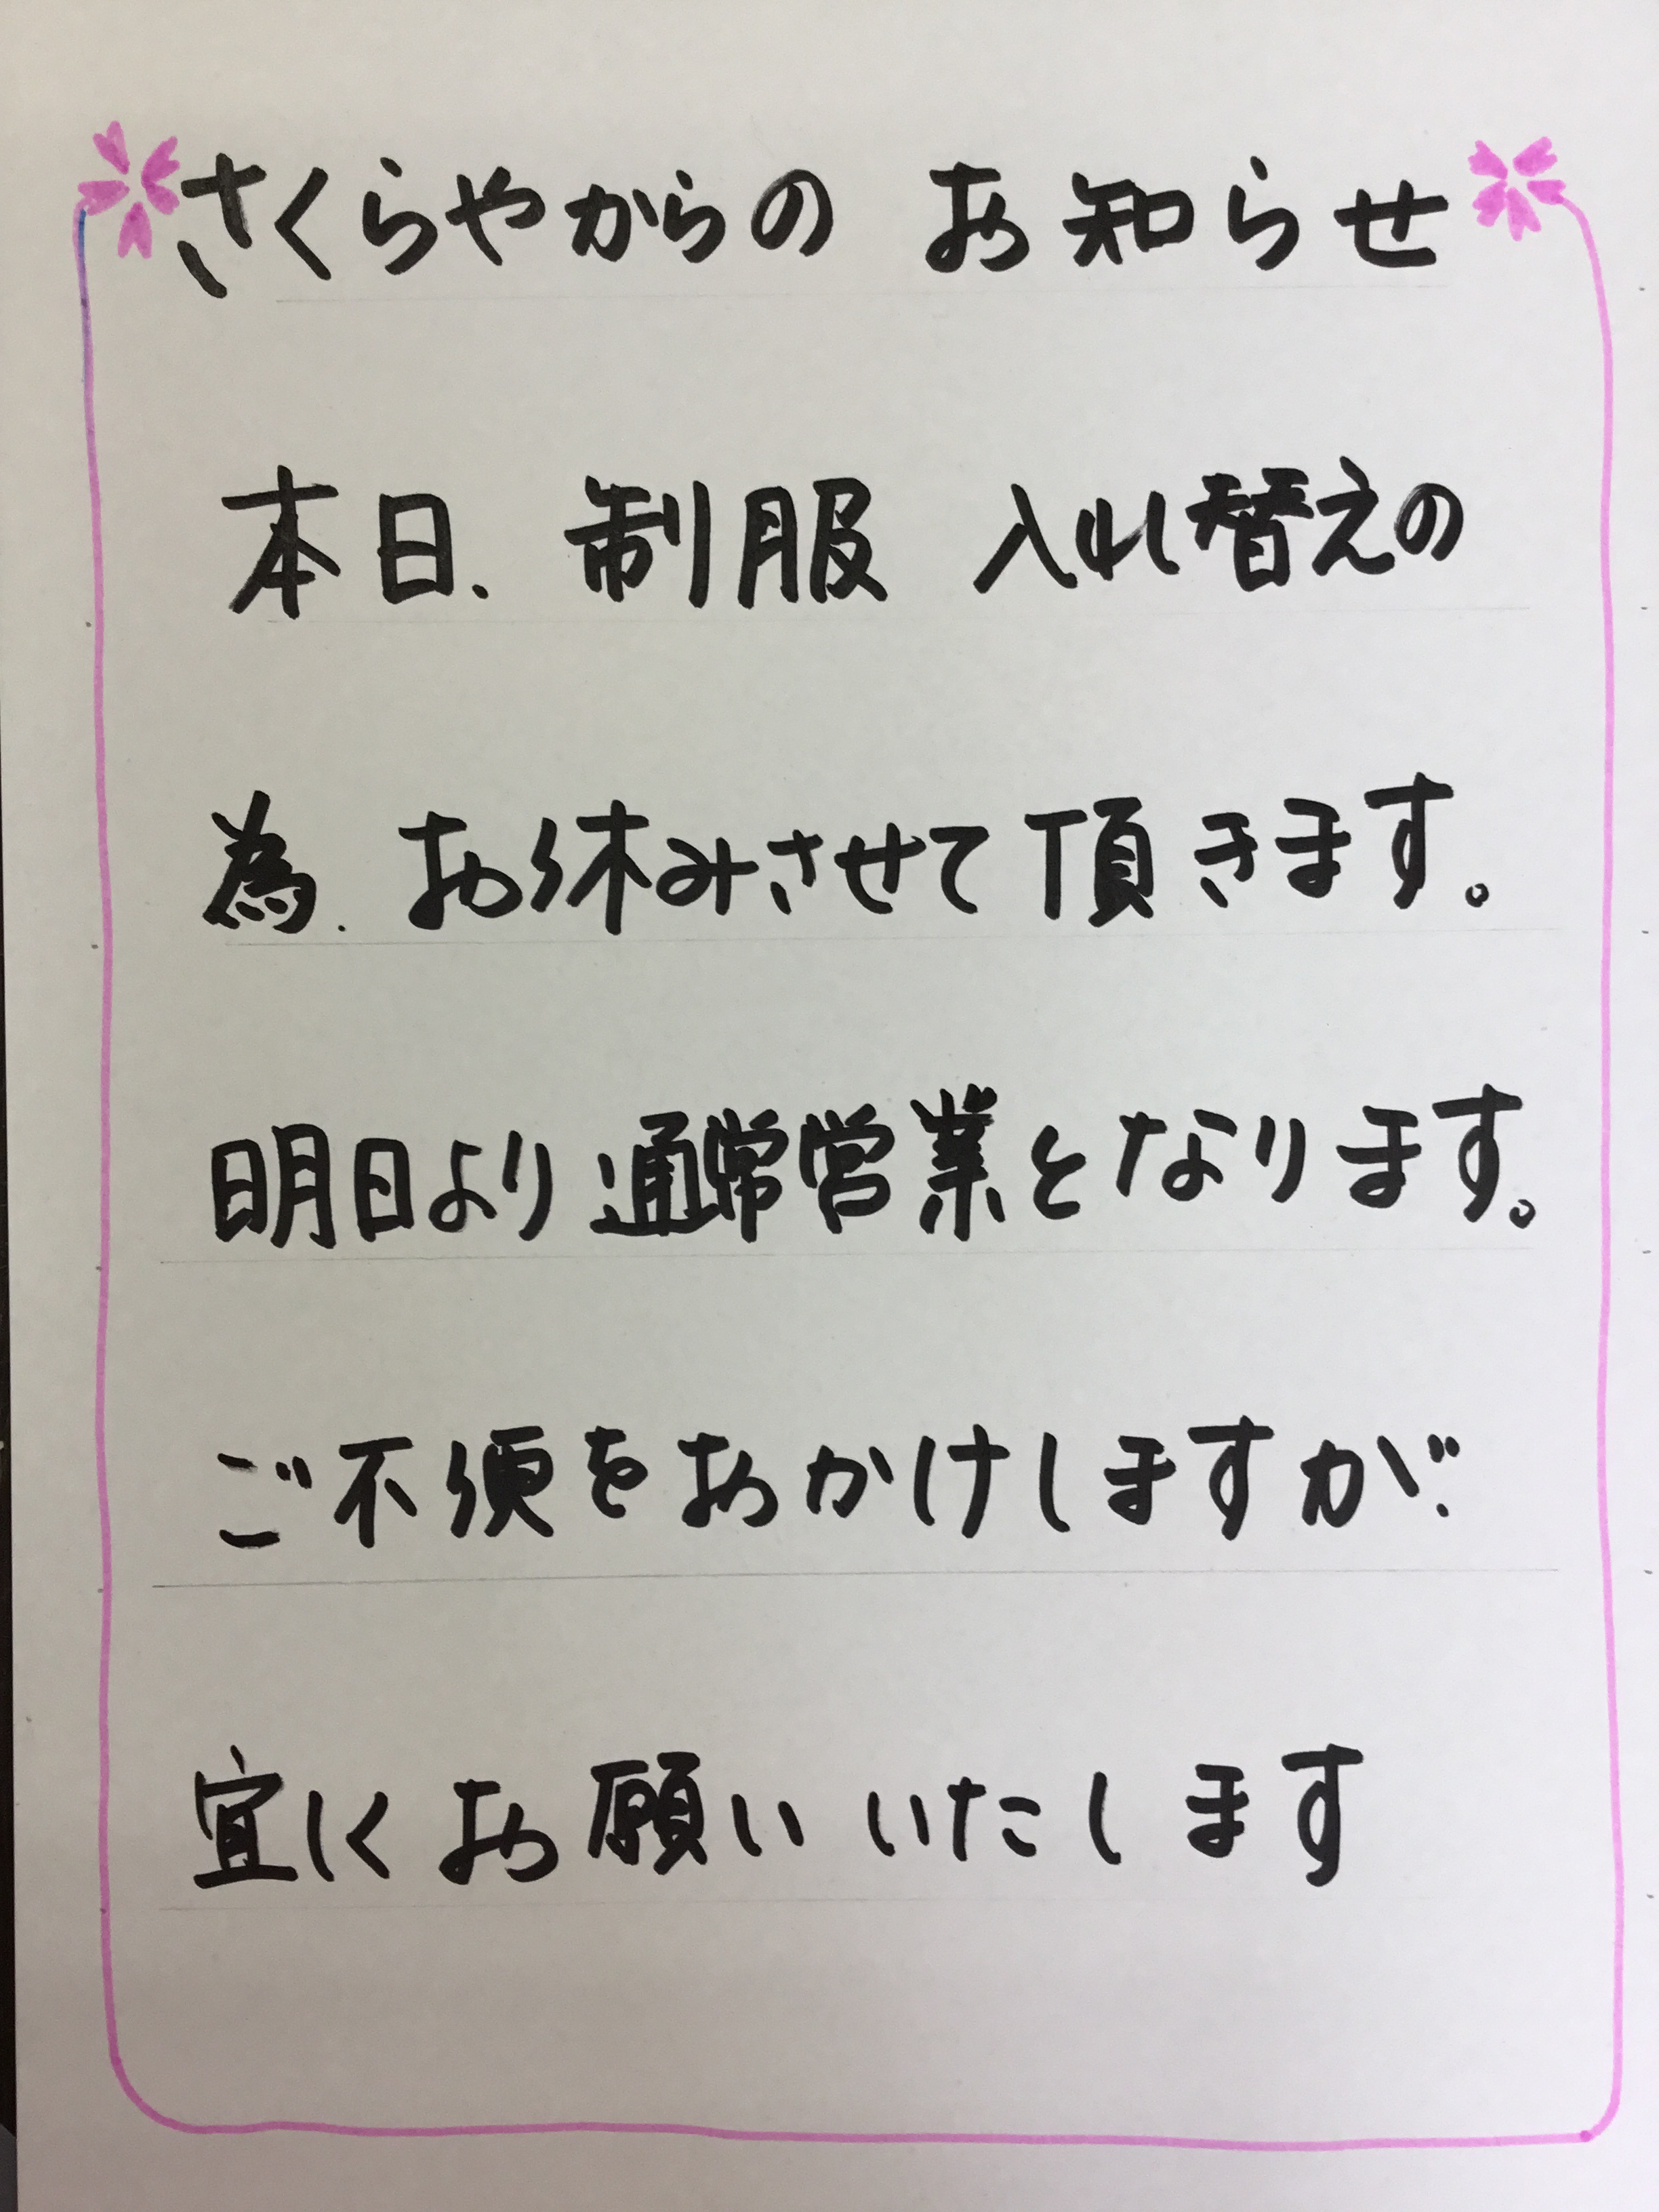 さくらやからの お知らせ
本日、制服 入れ替えの
為、お休みさせて頂きます。
明日より通常営業となります。
ご不便をおかけしますが、
宜しくお願いいたします